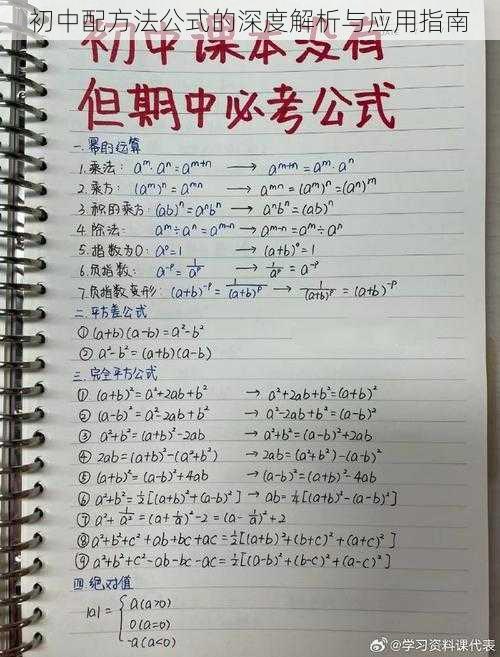 初中配方法公式的深度解析与应用指南
初中课本没有
但期中必考公式
一.幂的运算
1.乘法: aᵐ·aⁿ=aᵐ⁺ⁿ → aᵐ⁺ⁿ=aᵐ·aⁿ
2.乘方: (aᵐ)ⁿ=aᵐⁿ → aᵐⁿ=(aᵐ)ⁿ=(aⁿ)ᵐ
3.积的乘方:(ab)ⁿ=aⁿbⁿ → aⁿbⁿ=(ab)ⁿ
4.除法: aᵐ÷aⁿ=aᵐ⁻ⁿ → aᵐ⁻ⁿ=aᵐ÷aⁿ
5.指数为0: a⁰=1 → (a+b)⁰=1
6.负指数: a⁻ᵖ=1/aᵖ → 1/aᵖ=a⁻ᵖ
7.负指数变形: (a+b)⁻ᵖ=1/(a+b)ᵖ → 1/(a+b)ᵖ=(a+b)⁻ᵖ
二.平方差公式
① (a+b)(a-b)=a²-b²
② a²-b²=(a+b)(a-b)
三.完全平方公式
① (a+b)²=a²+2ab+b² → a²+2ab+b²=(a+b)²
② (a-b)²=a²-2ab+b² → a²-2ab+b²=(a-b)²
③ a²+b²=(a+b)²-2ab → a²+b²=(a-b)²+2ab
④ 2ab=(a+b)²-(a²+b²) → 2ab=(a²+b²)-(a-b)²
⑤ (a+b)²=(a-b)²+4ab → (a-b)²=(a+b)²-4ab
⑥ a²+b²=½[(a+b)²+(a-b)²] → ab=¼[(a+b)²-(a-b)²]
⑦ a²+1/a²=(a+1/a)²-2=(a-1/a)²+2
⑧ a²+b²+c²+ab+bc+ac=½[(a+b)²+(b+c)²+(a+c)²]
⑨ a²+b²+c²-ab-bc-ac=½[(a-b)²+(b-c)²+(a-c)²]
四.绝对值
|a|={a(a>0)
0(a=0)
-a(a<0)
@学习资料课代表